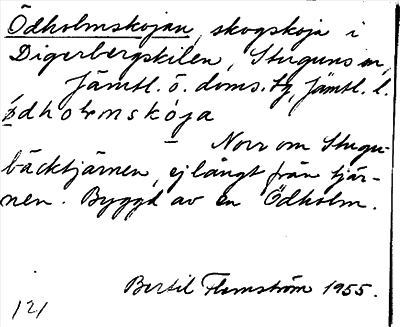 Ödholmskojan, skogskoja i
Digerbergskilen, Stuguns sn,
Jämtl. ö. doms. tg, Jämtl. l.
ødholmskója
— Norr om Stugu-
bäcktjärnen, ej långt från tjär-
nen. Byggd av en Ödholm.
Bertil Flemström 1955.
121